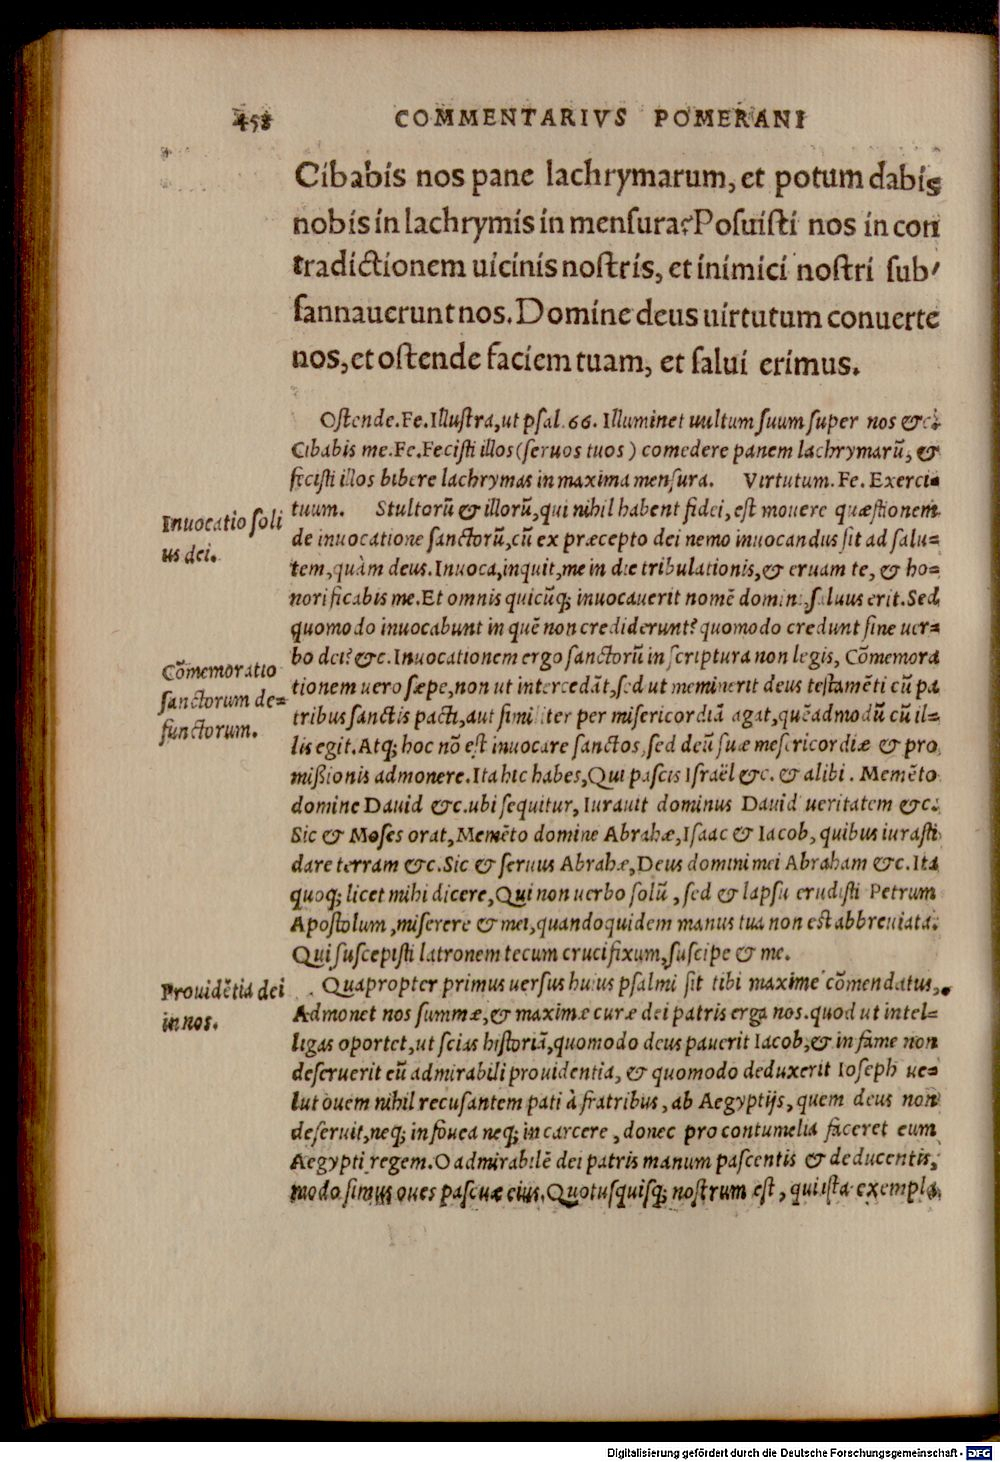 458 COMMENTARIVS POMERANI
Cibabis nos pane lachrymarum, et potum dabis
nobis in lachrymis in mensura? Posuisti nos in con
tradictionem uicinis nostris, et inimici nostri sub-
sannauerunt nos. Domine deus uirtutum conuerte
nos, et ostende faciem tuam, et salui erimus.
Ostende. Fe. Illustra, ut psal. 66. Illuminet uultum suum super nos &c.
Cibabis me. Fe. Fecisti illos (seruos tuos) comedere panem lachrymarũ, &
fecisti illos bibere lachrymas in maxima mensura. Virtutum. Fe. Exerci-
tuum. Stultorũ & illorũ, qui nihil habent fidei, est mouere quæstionem
Inuocatio soli
us dei.
de inuocatione sanctorũ, cũ ex præcepto dei nemo inuocandus sit ad salu-
tem, quàm deus. Inuoca, inquit, me in die tribulationis, & eruam te, & ho-
norificabis me. Et omnis quicũq; inuocauerit nomẽ domini, saluus erit. Sed
quomodo inuocabunt in quẽ non crediderunt? quomodo credunt sine uer-
bo dei? &c. Inuocationem ergo sanctorũ in scriptura non legis, Cõmemora
Cõmemoratio
sanctorum de-
functorum.
tionem uero sæpe, non ut intercedãt, sed ut meminerit deus testamẽti cũ pa
tribus sanctis pacti, aut similiter per misericordiã agat, quẽadmodũ cũ il-
lis egit. Atq; hoc nõ est inuocare sanctos, sed deũ suæ mesericordiæ & pro
mißionis admonere. Ita hic habes, Qui pascis Israël &c. & alibi. Memẽto
domine Dauid &c. ubi sequitur, Iurauit dominus Dauid ueritatem &c.
Sic & Moses orat, Memẽto domine Abrahæ, Isaac & Iacob, quibus iurasti
dare terram &c. Sic & seruus Abrahæ, Deus domini mei Abraham &c. Ita
quoq; licet mihi dicere, Qui non uerbo solũ, sed & lapsu erudisti Petrum
Apostolum, miserere & mei, quandoquidem manus tua non est abbreuiata.
Qui suscepisti latronem tecum crucifixum, suscipe & me.
Prouidẽtia dei
in nos.
Quapropter primus uersus huius psalmi sit tibi maxime cõmendatus,
Admonet nos summæ, & maximæ curæ dei patris erga nos. quod ut intel-
ligas oportet, ut scias historiã, quomodo deus pauerit Iacob, & in fame non
deseruerit eũ admirabili prouidentia, & quomodo deduxerit Ioseph ue-
lut ouem nihil recusantem pati à fratribus, ab Aegyptijs, quem deus non
deseruit, neq; in fouea neq; in carcere, donec pro contumelia faceret eum
Aegypti regem. O admirabilẽ dei patris manum pascentis & deducentis,
modo simus oues pascuæ eius. Quotusquisq; nostrum est, qui ista exempla
Digitalisierung gefördert durch die Deutsche Forschungsgemeinschaft - DFG